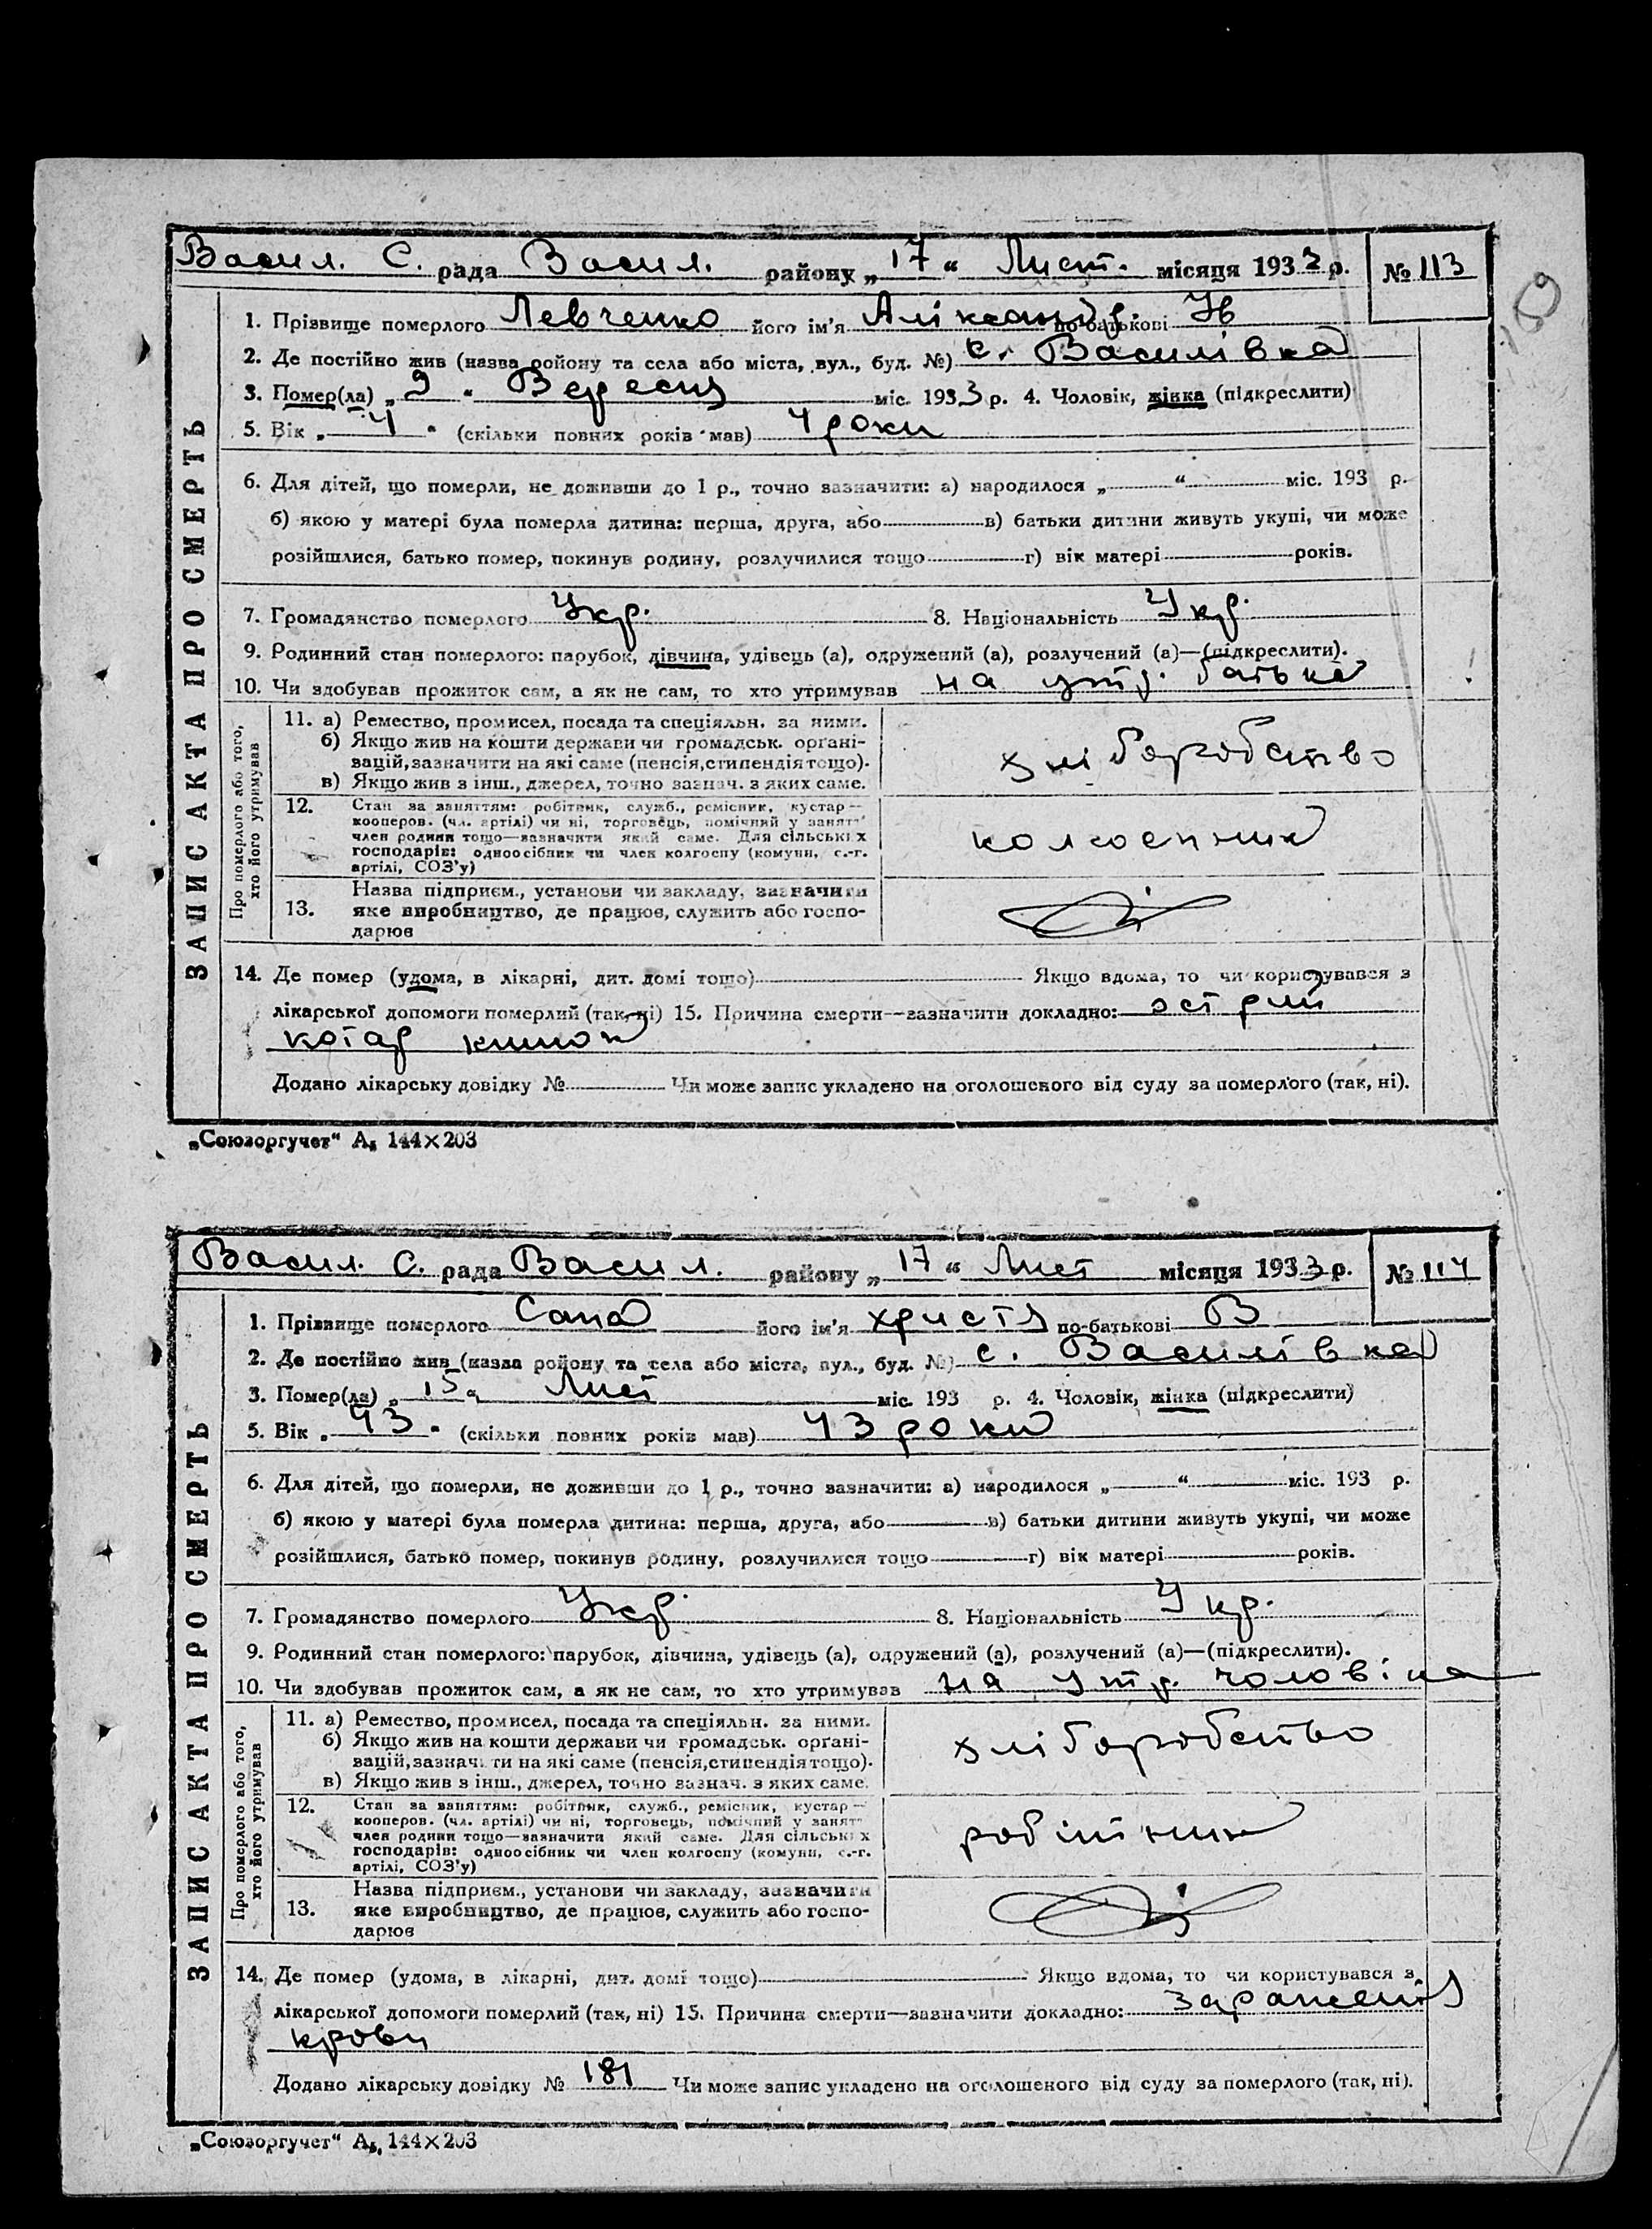 Васил. С. рада Васил. району „17“ Лист. місяця 1933 р. № 113
159
ЗАПИС АКТА ПРО СМЕРТЬ
1. Прізвище померлого Левченко його ім'я Аліксандр. по-батькові Ів
2. Де постійно жив (назва ройону та села або міста, вул., буд. №) с. Василівка
3. Помер(ла) „9“ Вересня міс. 1933 р. 4. Чоловік, жінка (підкреслити)
5. Вік „4“ (скільки повних років мав) 4 роки
6. Для дітей, що померли, не доживши до 1 р., точно зазначити: а) народилося „ “ міс. 193 р.
б) якою у матері була померла дитина: перша, друга, або в) батьки дитини живуть укупі, чи може
розійшлися, батько помер, покинув родину, розлучилися тощо г) вік матері років.
7. Громадянство померлого Укр. 8. Національність Укр.
9. Родинний стан померлого: парубок, дівчина, удівець (а), одружений (а), розлучений (а)—(підкреслити).
10. Чи здобував прожиток сам, а як не сам, то хто утримував на утр. батька
Про померлого або того, хто його утримував
11. а) Ремество, промисел, посада та спеціяльн. за ними.
б) Якщо жив на кошти держави чи громадськ. орґані-
зацій, зазначити на які саме (пенсія, стипендія тощо).
в) Якщо жив з інш., джерел, точно зазнач. з яких саме.
хліборобство
12. Стан за заняттям: робітник, служб., ремісник, кустар—
кооперов. (чл. артілі) чи ні, торговець, помічний у занят-
член родини тощо—зазначити який саме. Для сільських
господарів: одноосібник чи член колгоспу (комуни, с.-г.
артілі, СОЗ'у)
колгоспник
13. Назва підприєм., установи чи закладу, зазначити
яке виробництво, де працює, служить або госпо-
дарює
14. Де помер (удома, в лікарні, дит. домі тощо) Якщо вдома, то чи користувався з
лікарської допомоги померлий (так, ні) 15. Причина смерти—зазначити докладно: острий
котар кишок
Додано лікарську довідку № Чи може запис укладено на оголошеного від суду за померлого (так, ні).
„Союзоргучет“ А₅ 144×203
Васил. С. рада Васил. району „17“ Лист місяця 1933 р. № 114
ЗАПИС АКТА ПРО СМЕРТЬ
1. Прізвище померлого Сапа його ім'я христя по-батькові В
2. Де постійно жив (назва ройону та села або міста, вул., буд. №) с. Василівка
3. Помер(ла) „15“ Лист міс. 193 р. 4. Чоловік, жінка (підкреслити)
5. Вік „43“ (скільки повних років мав) 43 роки
6. Для дітей, що померли, не доживши до 1 р., точно зазначити: а) народилося „ “ міс. 193 р.
б) якою у матері була померла дитина: перша, друга, або в) батьки дитини живуть укупі, чи може
розійшлися, батько помер, покинув родину, розлучилися тощо г) вік матері років.
7. Громадянство померлого Укр. 8. Національність Укр.
9. Родинний стан померлого: парубок, дівчина, удівець (а), одружений (а), розлучений (а)—(підкреслити).
10. Чи здобував прожиток сам, а як не сам, то хто утримував на утр. чоловіка
Про померлого або того, хто його утримував
11. а) Ремество, промисел, посада та спеціяльн. за ними.
б) Якщо жив на кошти держави чи громадськ. орґані-
зацій, зазначити на які саме (пенсія, стипендія тощо).
в) Якщо жив з інш., джерел, точно зазнач. з яких саме.
хліборобство
12. Стан за заняттям: робітник, служб., ремісник, кустар—
кооперов. (чл. артілі) чи ні, торговець, помічний у занят-
член родини тощо—зазначити який саме. Для сільських
господарів: одноосібник чи член колгоспу (комуни, с.-г.
артілі, СОЗ'у)
робітник
13. Назва підприєм., установи чи закладу, зазначити
яке виробництво, де працює, служить або госпо-
дарює
14. Де помер (удома, в лікарні, дит. домі тощо) Якщо вдома, то чи користувався з
лікарської допомоги померлий (так, ні) 15. Причина смерти—зазначити докладно: зараженія
крови
Додано лікарську довідку № 181 Чи може запис укладено на оголошеного від суду за померлого (так, ні).
„Союзоргучет“ А₅ 144×203